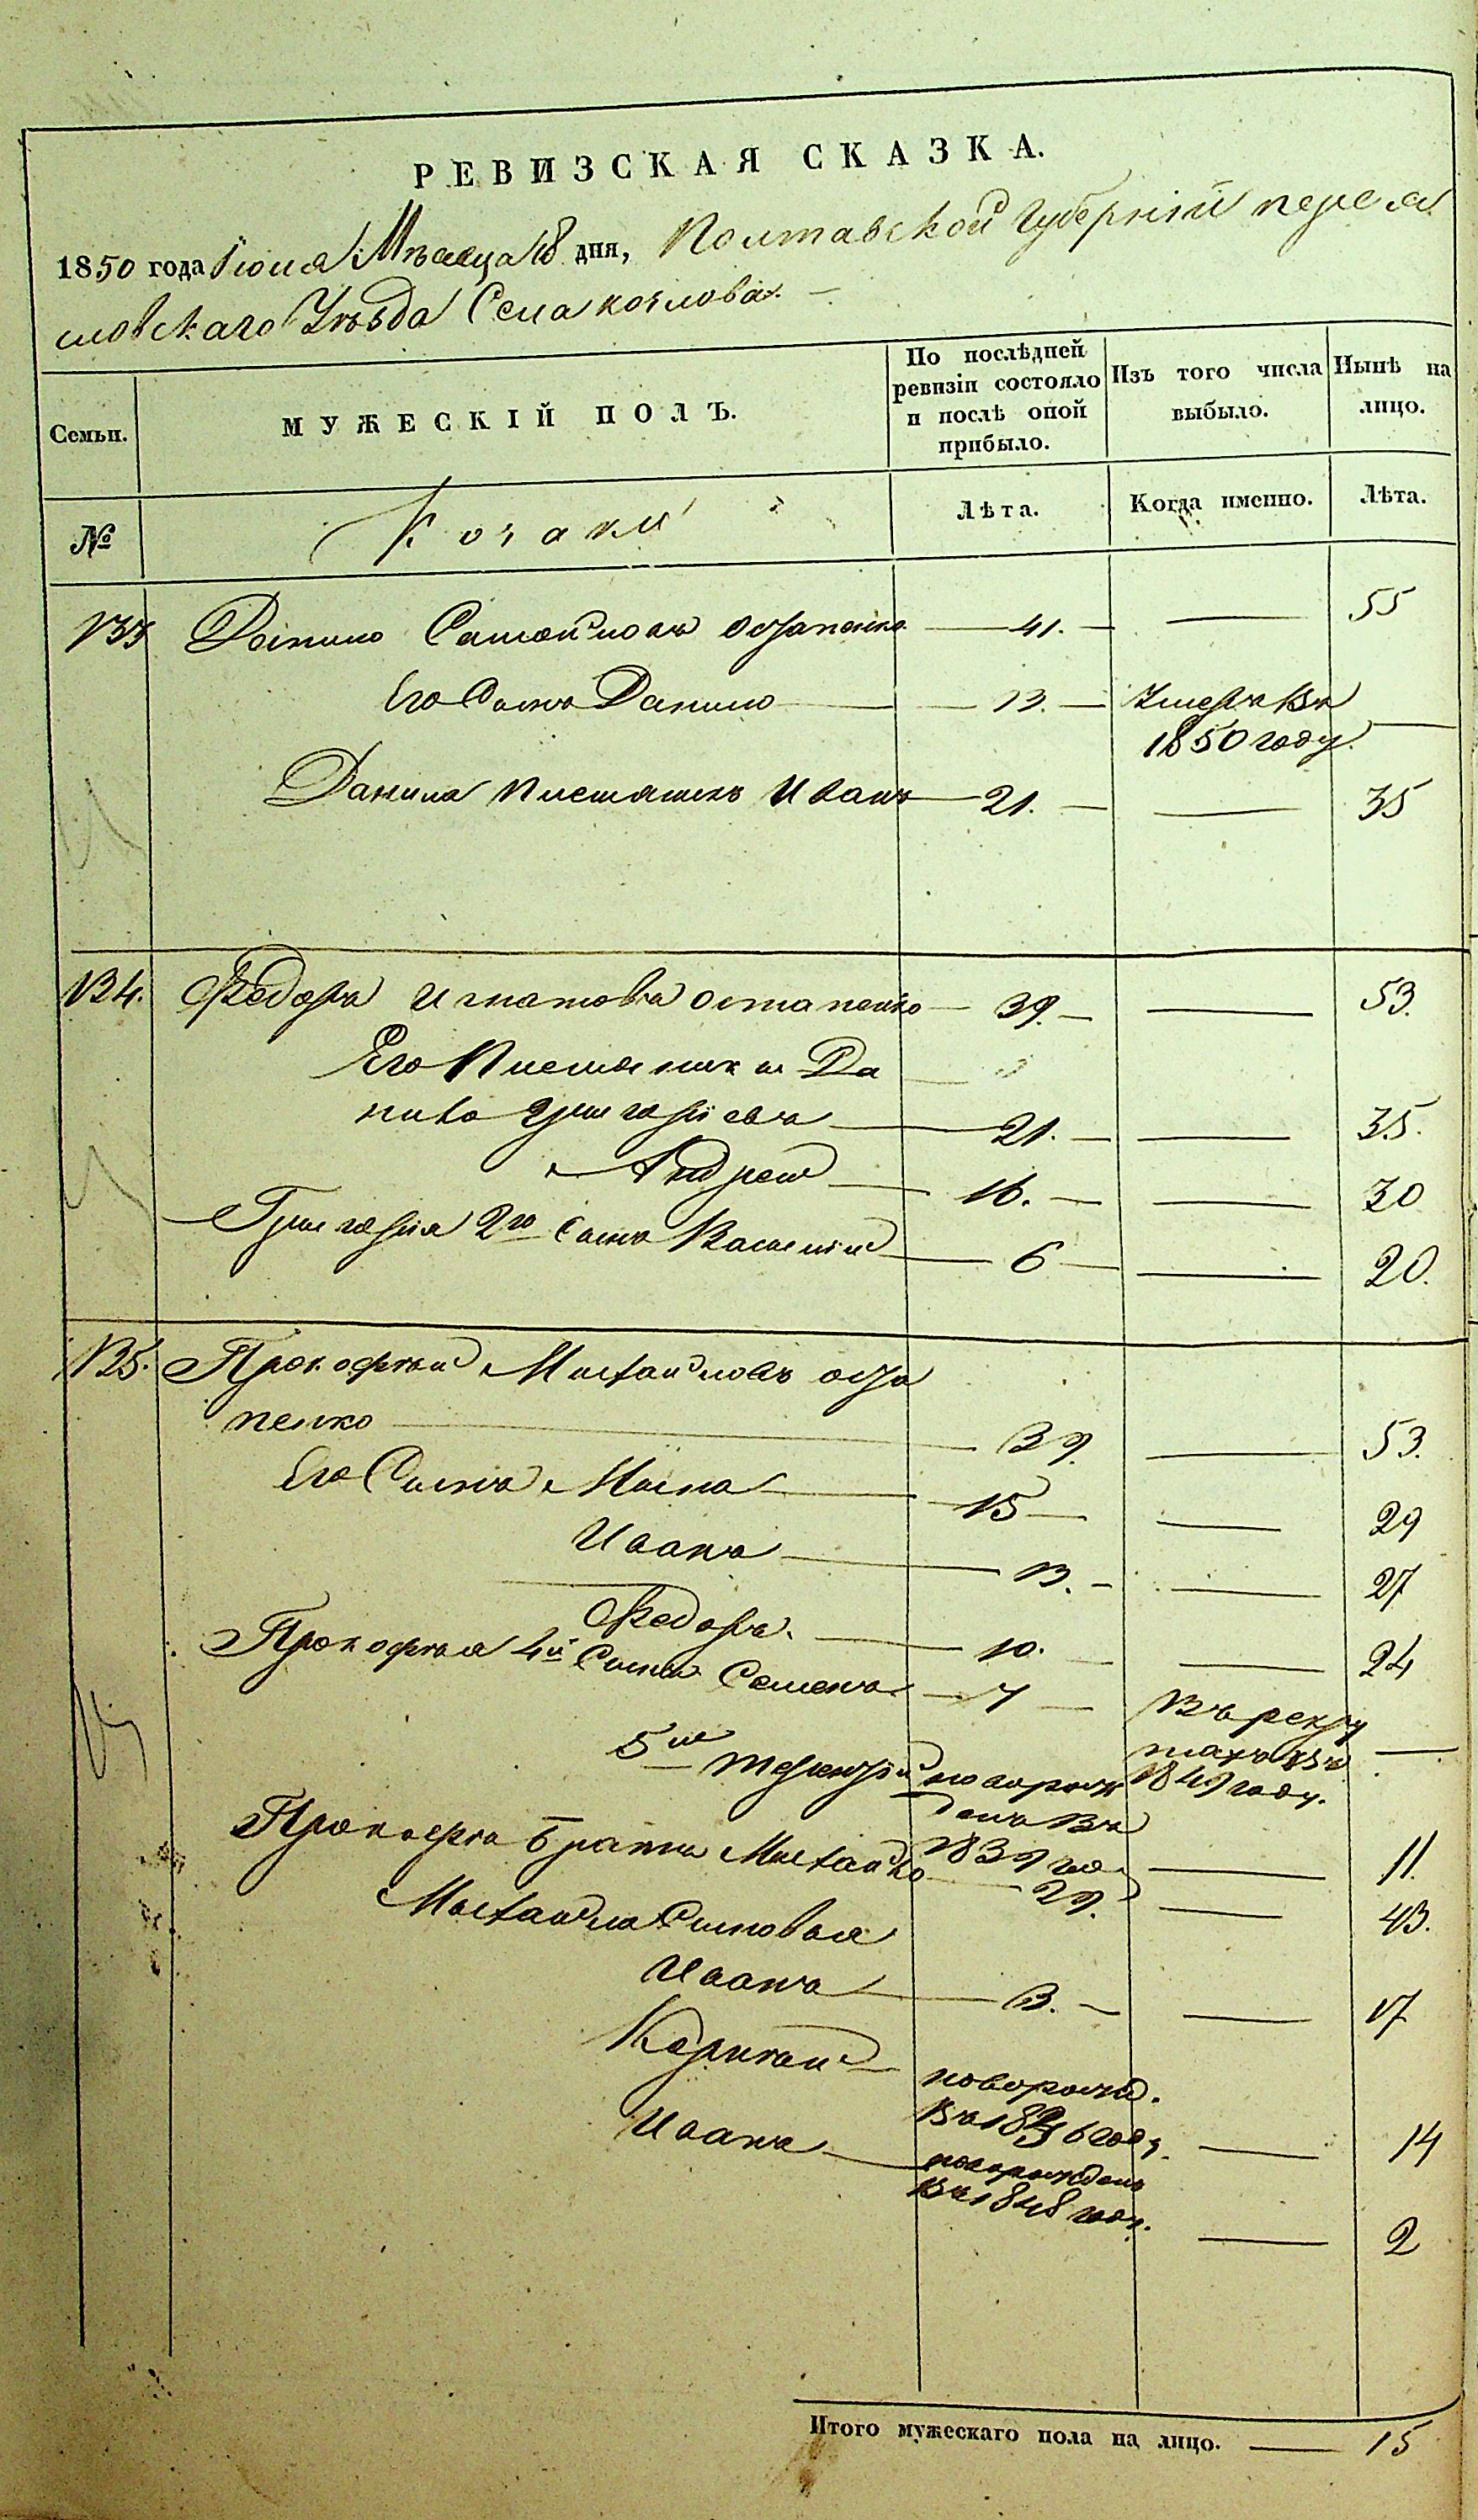 РЕВИЗСКАЯ СКАЗКА.
1850 года Июня Мѣсяца 18 дня, Полтавской Губерніи переяс
ловскаго Уѣзда Села козлова. —
Семьи.
МУЖЕСКІЙ ПОЛЪ.
По послѣдней ревизіи состояло и послѣ оной прибыло.
Изъ того числа выбыло.
Нынѣ на лицо.
№
Козаки
Лѣта.
Когда именно.
Лѣта.
133 Самойловъ Остапенко — 41. — — 55
Его Сынъ Данило — 13. — Умеръ въ
1850 году. —
Данила племяникъ Иванъ — 21. — — 35
134. Федоръ Игнатовъ остапенко — 39. — — 53.
Его Племяники Да
нило Григоріевъ — 21. — — 35.
Андрей — 16. — — 30
Григорія 2го Сынъ Василій — 6 — — 20.
135. Прокофій Михайловъ оста
пенко — 39. — 53.
Его Сынъ — 15 — — 29
Иванъ — 13. — — 27
Федоръ. — 10. — — 24
Прокофія 4й Сынъ Семенъ — 7 — Въ рекру
тахъ въ —
1849 году.
5ый Терентій новорож
денъ въ
1839 год — 11.
Прокофія братъ Михайло — 29. — 43.
Михайла Сыновья
Иванъ — 3. — — 17
Корнѣй — новорожд.
Въ 1836 году — 14
Иванъ — новорожденъ
Въ 1848 году. — 2
Итого мужескаго пола на лицо. — 15